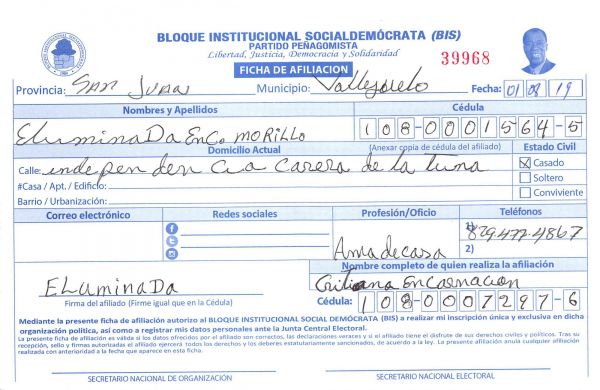 BLOQUE INSTITUCIONAL SOCIALDEMÓCRATA (BIS)
PARTIDO PEÑAGOMISTA
Libertad, Justicia, Democracia y Solidaridad
39968
FICHA DE AFILIACION
Provincia: San Juan Municipio: Vallejuelo Fecha: 01 08 19
Nombres y Apellidos Cédula
EluminaDa EnCo MORILLO 108-0001564-5
Domicilio Actual (Anexar copia de cédula del afiliado) Estado Civil
Calle: independencia carera de la tuna X Casado
#Casa / Apt. / Edificio: Soltero
Barrio / Urbanización: Conviviente
Correo electrónico Redes sociales Profesión/Oficio Teléfonos
1) 829-477-4867
Amadecasa 2)
Nombre completo de quien realiza la afiliación
ELuminaDa Encarnacion
Firma del afiliado (Firme igual que en la Cédula) Cédula: 108-0007297-6
Mediante la presente ficha de afiliación autorizo al BLOQUE INSTITUCIONAL SOCIAL DEMÓCRATA (BIS) a realizar mi inscripción única y exclusiva en dicha
organización política, así como a registrar mis datos personales ante la Junta Central Electoral.
La presente ficha de afiliación es válida si los datos ofrecidos por el afiliado son correctos, las declaraciones veraces y si el afiliado tiene el disfrute de sus derechos civiles y políticos. Tras su
recepción, sello y firmas autorizadas el afiliado ejercerá todos los derechos y los deberes estatutariamente sancionados, de acuerdo a la ley. La presente afiliación anula cualquier afiliación
realizada con anterioridad a la fecha que aparece en esta ficha.
SECRETARIO NACIONAL DE ORGANIZACIÓN SECRETARIO NACIONAL ELECTORAL